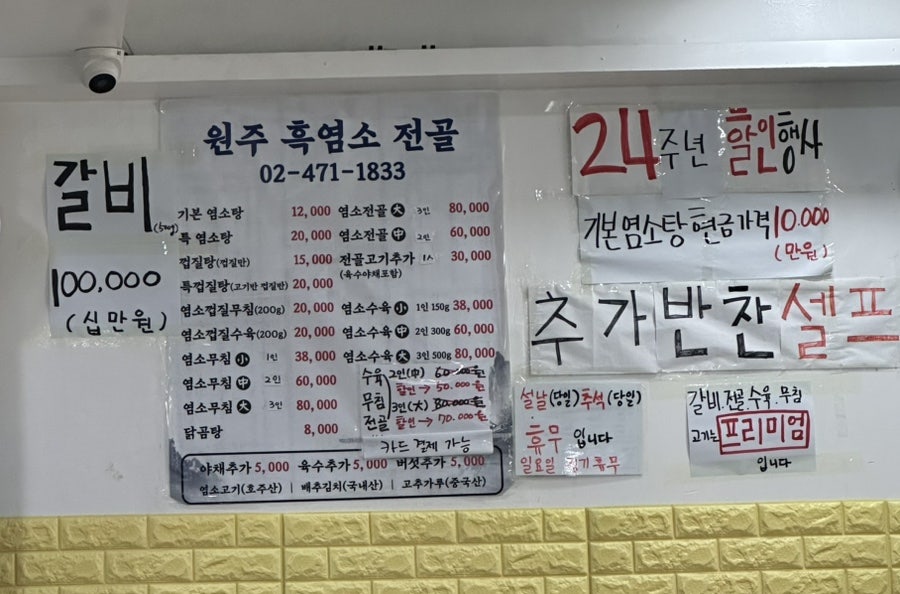 갈비
100,000
(십만원)
원주 흑염소 전골
02-471-1833
기본 염소탕 12,000
특 염소탕 20,000
껍질탕(껍질만) 15,000
특껍질탕(고기반 껍질반) 20,000
염소껍질무침(200g) 20,000
염소껍질수육(200g) 20,000
염소무침 小 1인 38,000
염소무침 中 2인 60,000
염소무침 大 3인 80,000
닭곰탕 8,000
염소전골 大 3인 80,000
염소전골 中 2인 60,000
전골고기추가 1人 30,000
(육수야채포함)
염소수육 小 1인 150g 38,000
염소수육 中 2인 300g 60,000
염소수육 大 3인 500g 80,000
수육 2인(中) 60.000원
할인→50.000원
무침 3인(大) 80.000원
전골 할인→70.000원
카드 결제 가능
야채추가 5,000 육수추가 5,000 버섯추가 5,000
염소고기(호주산) | 배추김치(국내산) | 고추가루(중국산)
24주년 할인행사
기본염소탕 현금가격 10.000
(만원)
추가반찬 셀프
설날(당일) 추석(당일)
휴무 입니다
일요일 정기휴무
갈비.전골.수육.무침
고기는 프리미엄
입니다